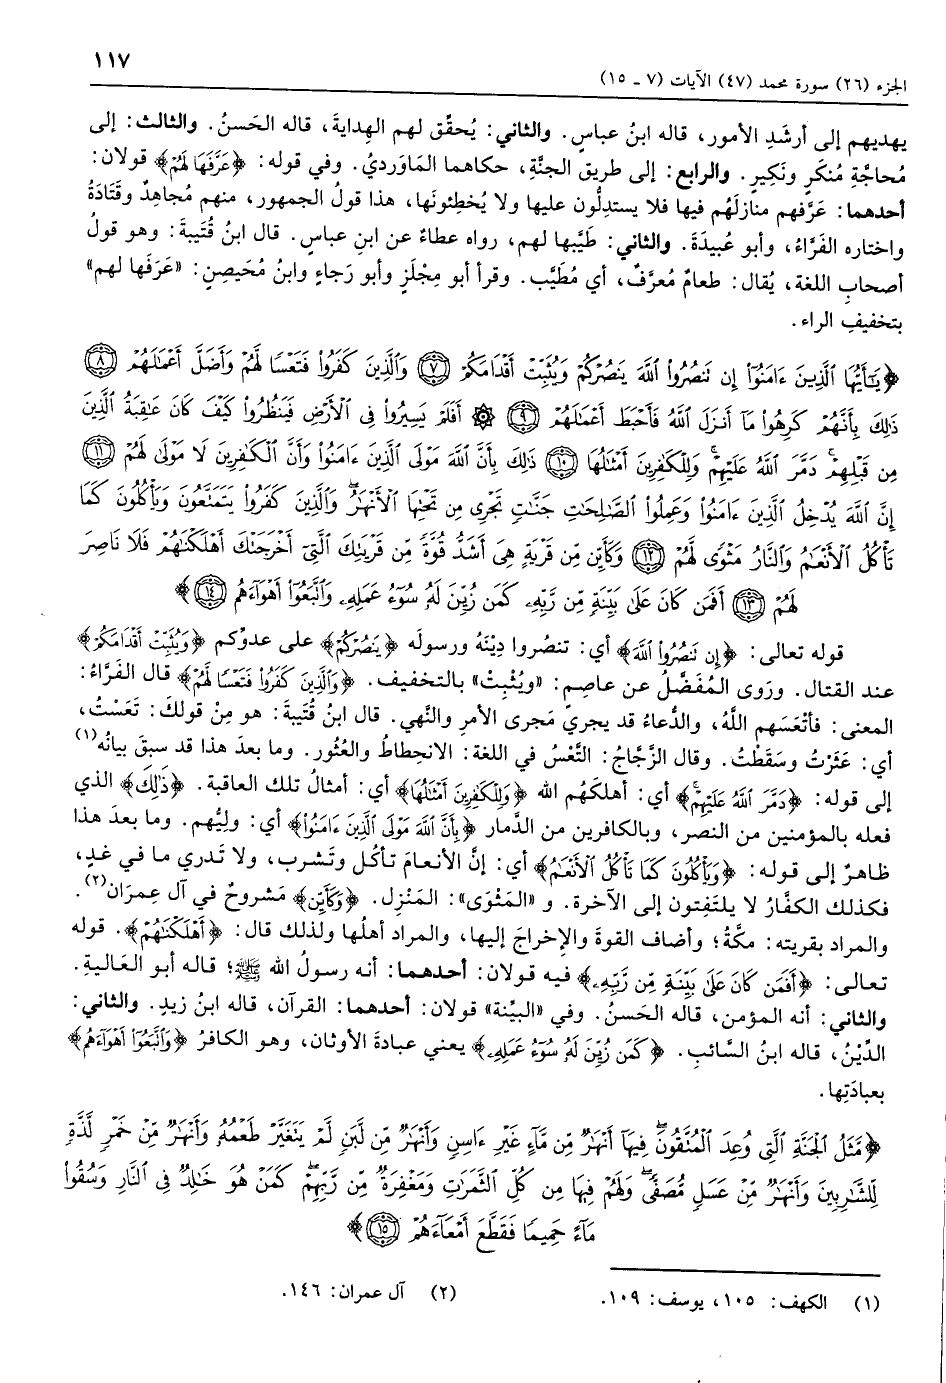 ١١٧
الجزء (٢٦) سورة محمد (٤٧) الآيات (٧ ـ ١٥)
يهديهم إلى أرشَدِ الأمور، قاله ابنُ عباسٍ. والثاني: يُحقِّق لهم الهِدايةَ، قاله الحَسنُ. والثالث: إلى
مُحاجَّةِ مُنكَرٍ ونَكِيرٍ. والرابع: إلى طريق الجنَّةِ، حكاهما المَاوَرديُّ. وفي قوله: ﴿عَرَّفَهَا لَهُمْ﴾ قولان:
أحدهما: عَرَّفهم منازلَهُم فيها فلا يستدِلُّون عليها ولا يُخطِئونَها، هذا قولُ الجمهور، منهم مُجاهِدٌ وقَتَادَةُ
واختاره الفَرَّاءُ، وأبو عُبيدَةَ. والثاني: طَيَّبها لهم، رواه عطاءٌ عن ابنِ عباس. قال ابنُ قُتَيبة: وهو قولُ
أصحابِ اللغة، يُقال: طعامٌ مُعرَّفٌ، أي مُطَيَّب. وقرأ أبو مِجْلَزٍ وأبو رَجاءٍ وابنُ مُحَيصِنٍ: «عَرَفَها لهم»
بتخفيفِ الراء.
﴿يَٰٓأَيُّهَا ٱلَّذِينَ ءَامَنُوٓا۟ إِن تَنصُرُوا۟ ٱللَّهَ يَنصُرْكُمْ وَيُثَبِّتْ أَقْدَامَكُمْ ٧ وَٱلَّذِينَ كَفَرُوا۟ فَتَعْسًا لَّهُمْ وَأَضَلَّ أَعْمَٰلَهُمْ ٨
ذَٰلِكَ بِأَنَّهُمْ كَرِهُوا۟ مَآ أَنزَلَ ٱللَّهُ فَأَحْبَطَ أَعْمَٰلَهُمْ ٩ ۞ أَفَلَمْ يَسِيرُوا۟ فِى ٱلْأَرْضِ فَيَنظُرُوا۟ كَيْفَ كَانَ عَٰقِبَةُ ٱلَّذِينَ
مِن قَبْلِهِمْ ۚ دَمَّرَ ٱللَّهُ عَلَيْهِمْ ۖ وَلِلْكَٰفِرِينَ أَمْثَٰلُهَا ١٠ ذَٰلِكَ بِأَنَّ ٱللَّهَ مَوْلَى ٱلَّذِينَ ءَامَنُوا۟ وَأَنَّ ٱلْكَٰفِرِينَ لَا مَوْلَىٰ لَهُمْ ١١
إِنَّ ٱللَّهَ يُدْخِلُ ٱلَّذِينَ ءَامَنُوا۟ وَعَمِلُوا۟ ٱلصَّٰلِحَٰتِ جَنَّٰتٍ تَجْرِى مِن تَحْتِهَا ٱلْأَنْهَٰرُ ۖ وَٱلَّذِينَ كَفَرُوا۟ يَتَمَتَّعُونَ وَيَأْكُلُونَ كَمَا
تَأْكُلُ ٱلْأَنْعَٰمُ وَٱلنَّارُ مَثْوًى لَّهُمْ ١٢ وَكَأَيِّن مِّن قَرْيَةٍ هِىَ أَشَدُّ قُوَّةً مِّن قَرْيَتِكَ ٱلَّتِىٓ أَخْرَجَتْكَ أَهْلَكْنَٰهُمْ فَلَا نَاصِرَ
لَهُمْ ١٣ أَفَمَن كَانَ عَلَىٰ بَيِّنَةٍ مِّن رَّبِّهِۦ كَمَن زُيِّنَ لَهُۥ سُوٓءُ عَمَلِهِۦ وَٱتَّبَعُوٓا۟ أَهْوَآءَهُم ١٤ ﴾
قوله تعالى: ﴿إِن تَنصُرُوا۟ ٱللَّهَ﴾ أي: تنصُروا دِينَهُ ورسولَه ﴿يَنصُرْكُمْ﴾ على عدوِّكم ﴿وَيُثَبِّتْ أَقْدَامَكُمْ﴾
عند القتال. ورَوى المُفَضَّلُ عن عاصِمٍ: «ويُثْبِتْ» بالتخفيف. ﴿وَٱلَّذِينَ كَفَرُوا۟ فَتَعْسًا لَّهُمْ﴾ قال الفَرَّاءُ:
المعنى: فأَتْعَسَهم اللَّهُ، والدُّعاءُ قد يجري مَجرى الأمرِ والنَّهي. قال ابنُ قُتَيبةَ: هو مِنْ قولكَ: تَعَسْتُ،
أي: عَثَرْتُ وسَقَطْتُ. وقال الزَّجَّاجُ: التَّعْسُ في اللغة: الانحِطاطُ والعُثُور. وما بعدَ هذا قد سبقَ بيانُه(١)
إلى قوله: ﴿دَمَّرَ ٱللَّهُ عَلَيْهِمْ﴾ أي: أهلكَهُم الله ﴿وَلِلْكَٰفِرِينَ أَمْثَٰلُهَا﴾ أي: أمثالُ تلك العاقبة. ﴿ذَٰلِكَ﴾ الذي
فعله بالمؤمنين من النصر، وبالكافرين من الدَّمار ﴿بِأَنَّ ٱللَّهَ مَوْلَى ٱلَّذِينَ ءَامَنُوا۟﴾ أي: وليُّهم. وما بعدَ هذا
ظاهرٌ إلى قوله: ﴿وَيَأْكُلُونَ كَمَا تَأْكُلُ ٱلْأَنْعَٰمُ﴾ أي: إنَّ الأنعامَ تأكُل وتَشرب، ولا تَدري ما في غدٍ،
فكذلك الكفَّارُ لا يلتَفِتون إلى الآخرة. و «المَثْوَى»: المَنْزِل. ﴿وَكَأَيِّن﴾ مَشروحٌ في آل عِمرَان(٢).
والمراد بقريته: مكَّةُ؛ وأضاف القوةَ والإخراجَ إليها، والمراد أهلُها ولذلك قال: ﴿أَهْلَكْنَٰهُمْ﴾. قوله
تعالى: ﴿أَفَمَن كَانَ عَلَىٰ بَيِّنَةٍ مِّن رَّبِّهِۦ﴾ فيه قولان: أحدهما: أنه رسولُ الله ﷺ؛ قاله أبو العَاليةِ.
والثاني: أنه المؤمن، قاله الحَسنُ. وفي «البيِّنة» قولان: أحدهما: القرآن، قاله ابنُ زيدٍ. والثاني:
الدِّيْنُ، قاله ابنُ السَّائب. ﴿كَمَن زُيِّنَ لَهُۥ سُوٓءُ عَمَلِهِۦ﴾ يعني عبادةَ الأوثان، وهو الكافرُ ﴿وَٱتَّبَعُوٓا۟ أَهْوَآءَهُم﴾
بعبادَتِها.
﴿مَّثَلُ ٱلْجَنَّةِ ٱلَّتِى وُعِدَ ٱلْمُتَّقُونَ ۖ فِيهَآ أَنْهَٰرٌ مِّن مَّآءٍ غَيْرِ ءَاسِنٍ وَأَنْهَٰرٌ مِّن لَّبَنٍ لَّمْ يَتَغَيَّرْ طَعْمُهُۥ وَأَنْهَٰرٌ مِّنْ خَمْرٍ لَّذَّةٍ
لِّلشَّٰرِبِينَ وَأَنْهَٰرٌ مِّنْ عَسَلٍ مُّصَفًّى ۖ وَلَهُمْ فِيهَا مِن كُلِّ ٱلثَّمَرَٰتِ وَمَغْفِرَةٌ مِّن رَّبِّهِمْ ۖ كَمَنْ هُوَ خَٰلِدٌ فِى ٱلنَّارِ وَسُقُوا۟
مَآءً حَمِيمًا فَقَطَّعَ أَمْعَآءَهُمْ ١٥ ﴾
(١) الكهف: ١٠٥، يوسف: ١٠٩.
(٢) آل عمران: ١٤٦.